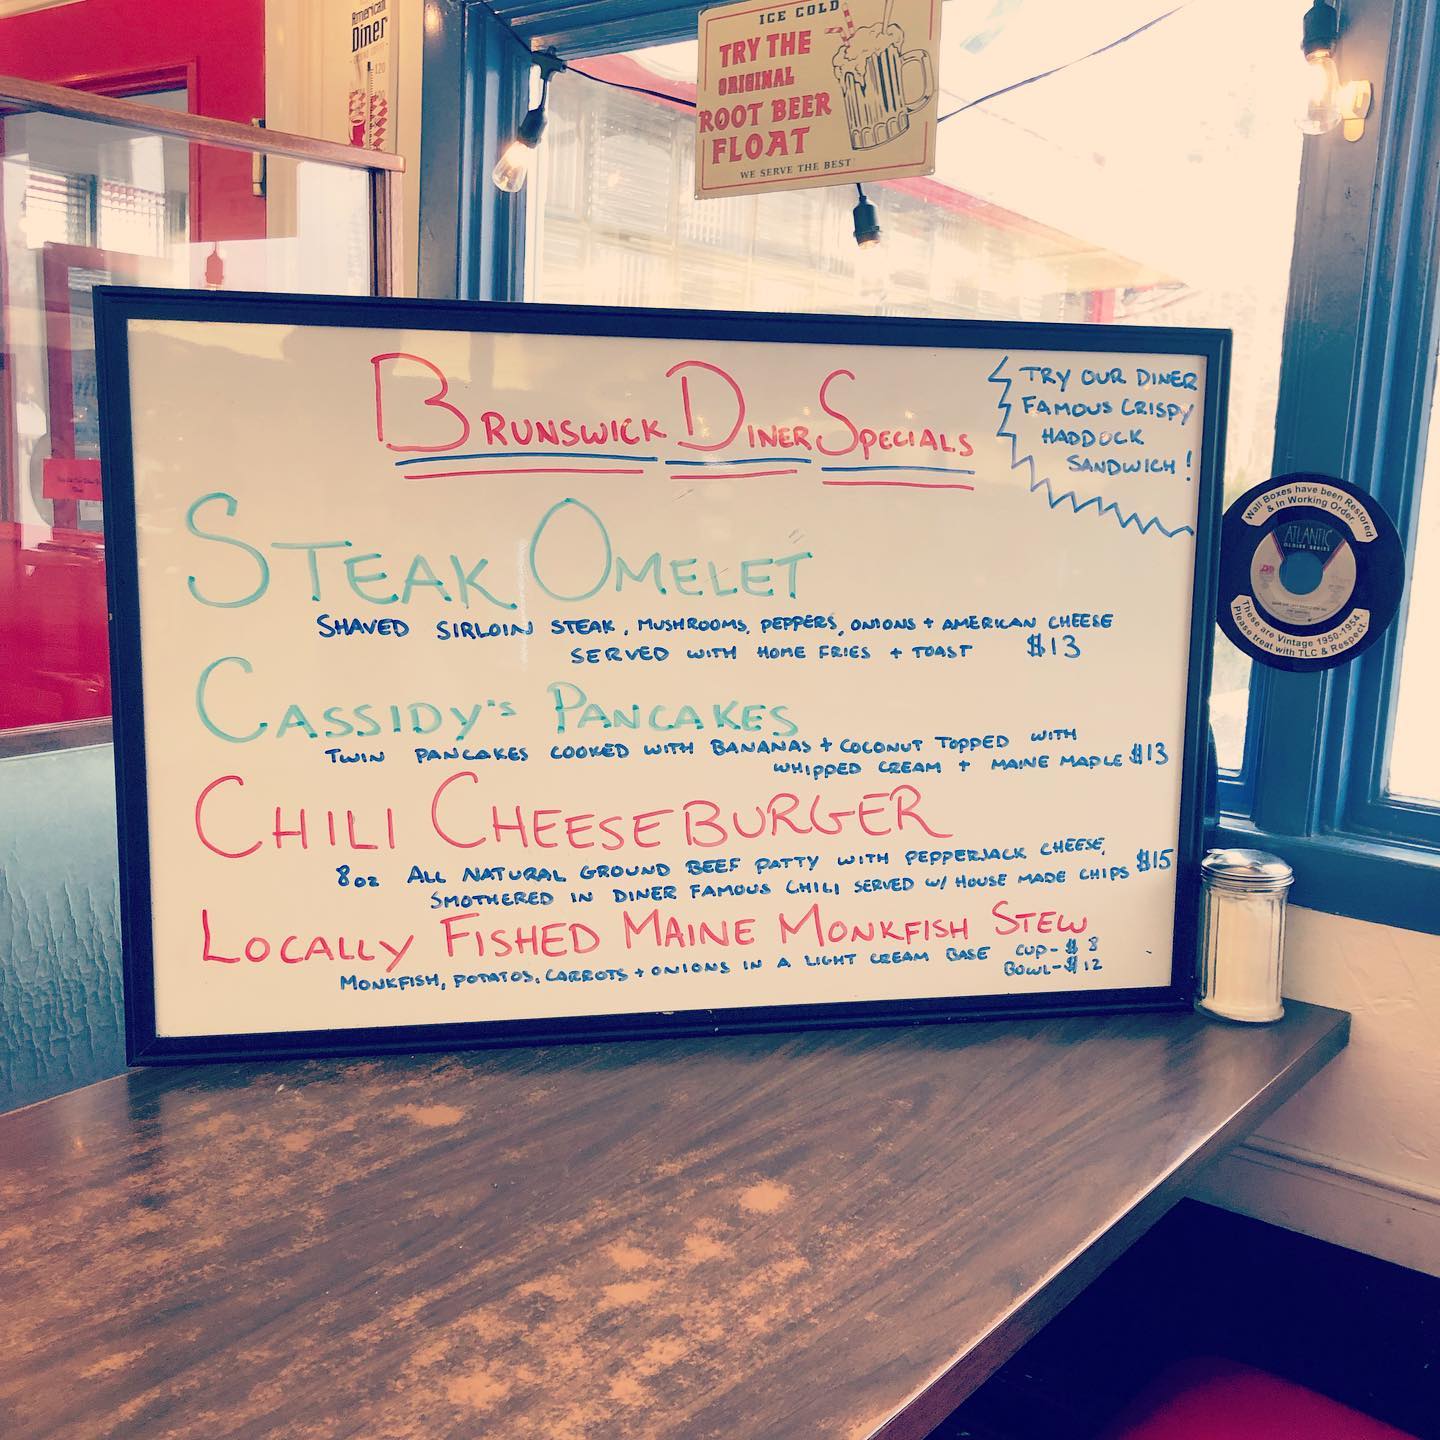 American
Diner
120
ICE COLD
TRY THE
ORIGINAL
ROOT BEER
FLOAT
WE SERVE THE BEST
BRUNSWICK DINER SPECIALS
TRY OUR DINER
FAMOUS CRISPY
HADDOCK
SANDWICH!
STEAK OMELET
SHAVED SIRLOIN STEAK, MUSHROOMS, PEPPERS, ONIONS + AMERICAN CHEESE
SERVED WITH HOME FRIES + TOAST $13
CASSIDY'S PANCAKES
TWIN PANCAKES COOKED WITH BANANAS + COCONUT TOPPED WITH
WHIPPED CREAM + MAINE MAPLE $13
CHILI CHEESEBURGER
8oz ALL NATURAL GROUND BEEF PATTY WITH PEPPERJACK CHEESE,
SMOTHERED IN DINER FAMOUS CHILI SERVED W/ HOUSE MADE CHIPS $15
LOCALLY FISHED MAINE MONKFISH STEW
MONKFISH, POTATOS, CARROTS + ONIONS IN A LIGHT CREAM BASE CUP-$8
BOWL-$12
Wall Boxes have been Restored
& In Working Order.
ATLANTIC
OLDIES SERIES
These are Vintage 1950-1954.
Please treat with TLC & Respect.